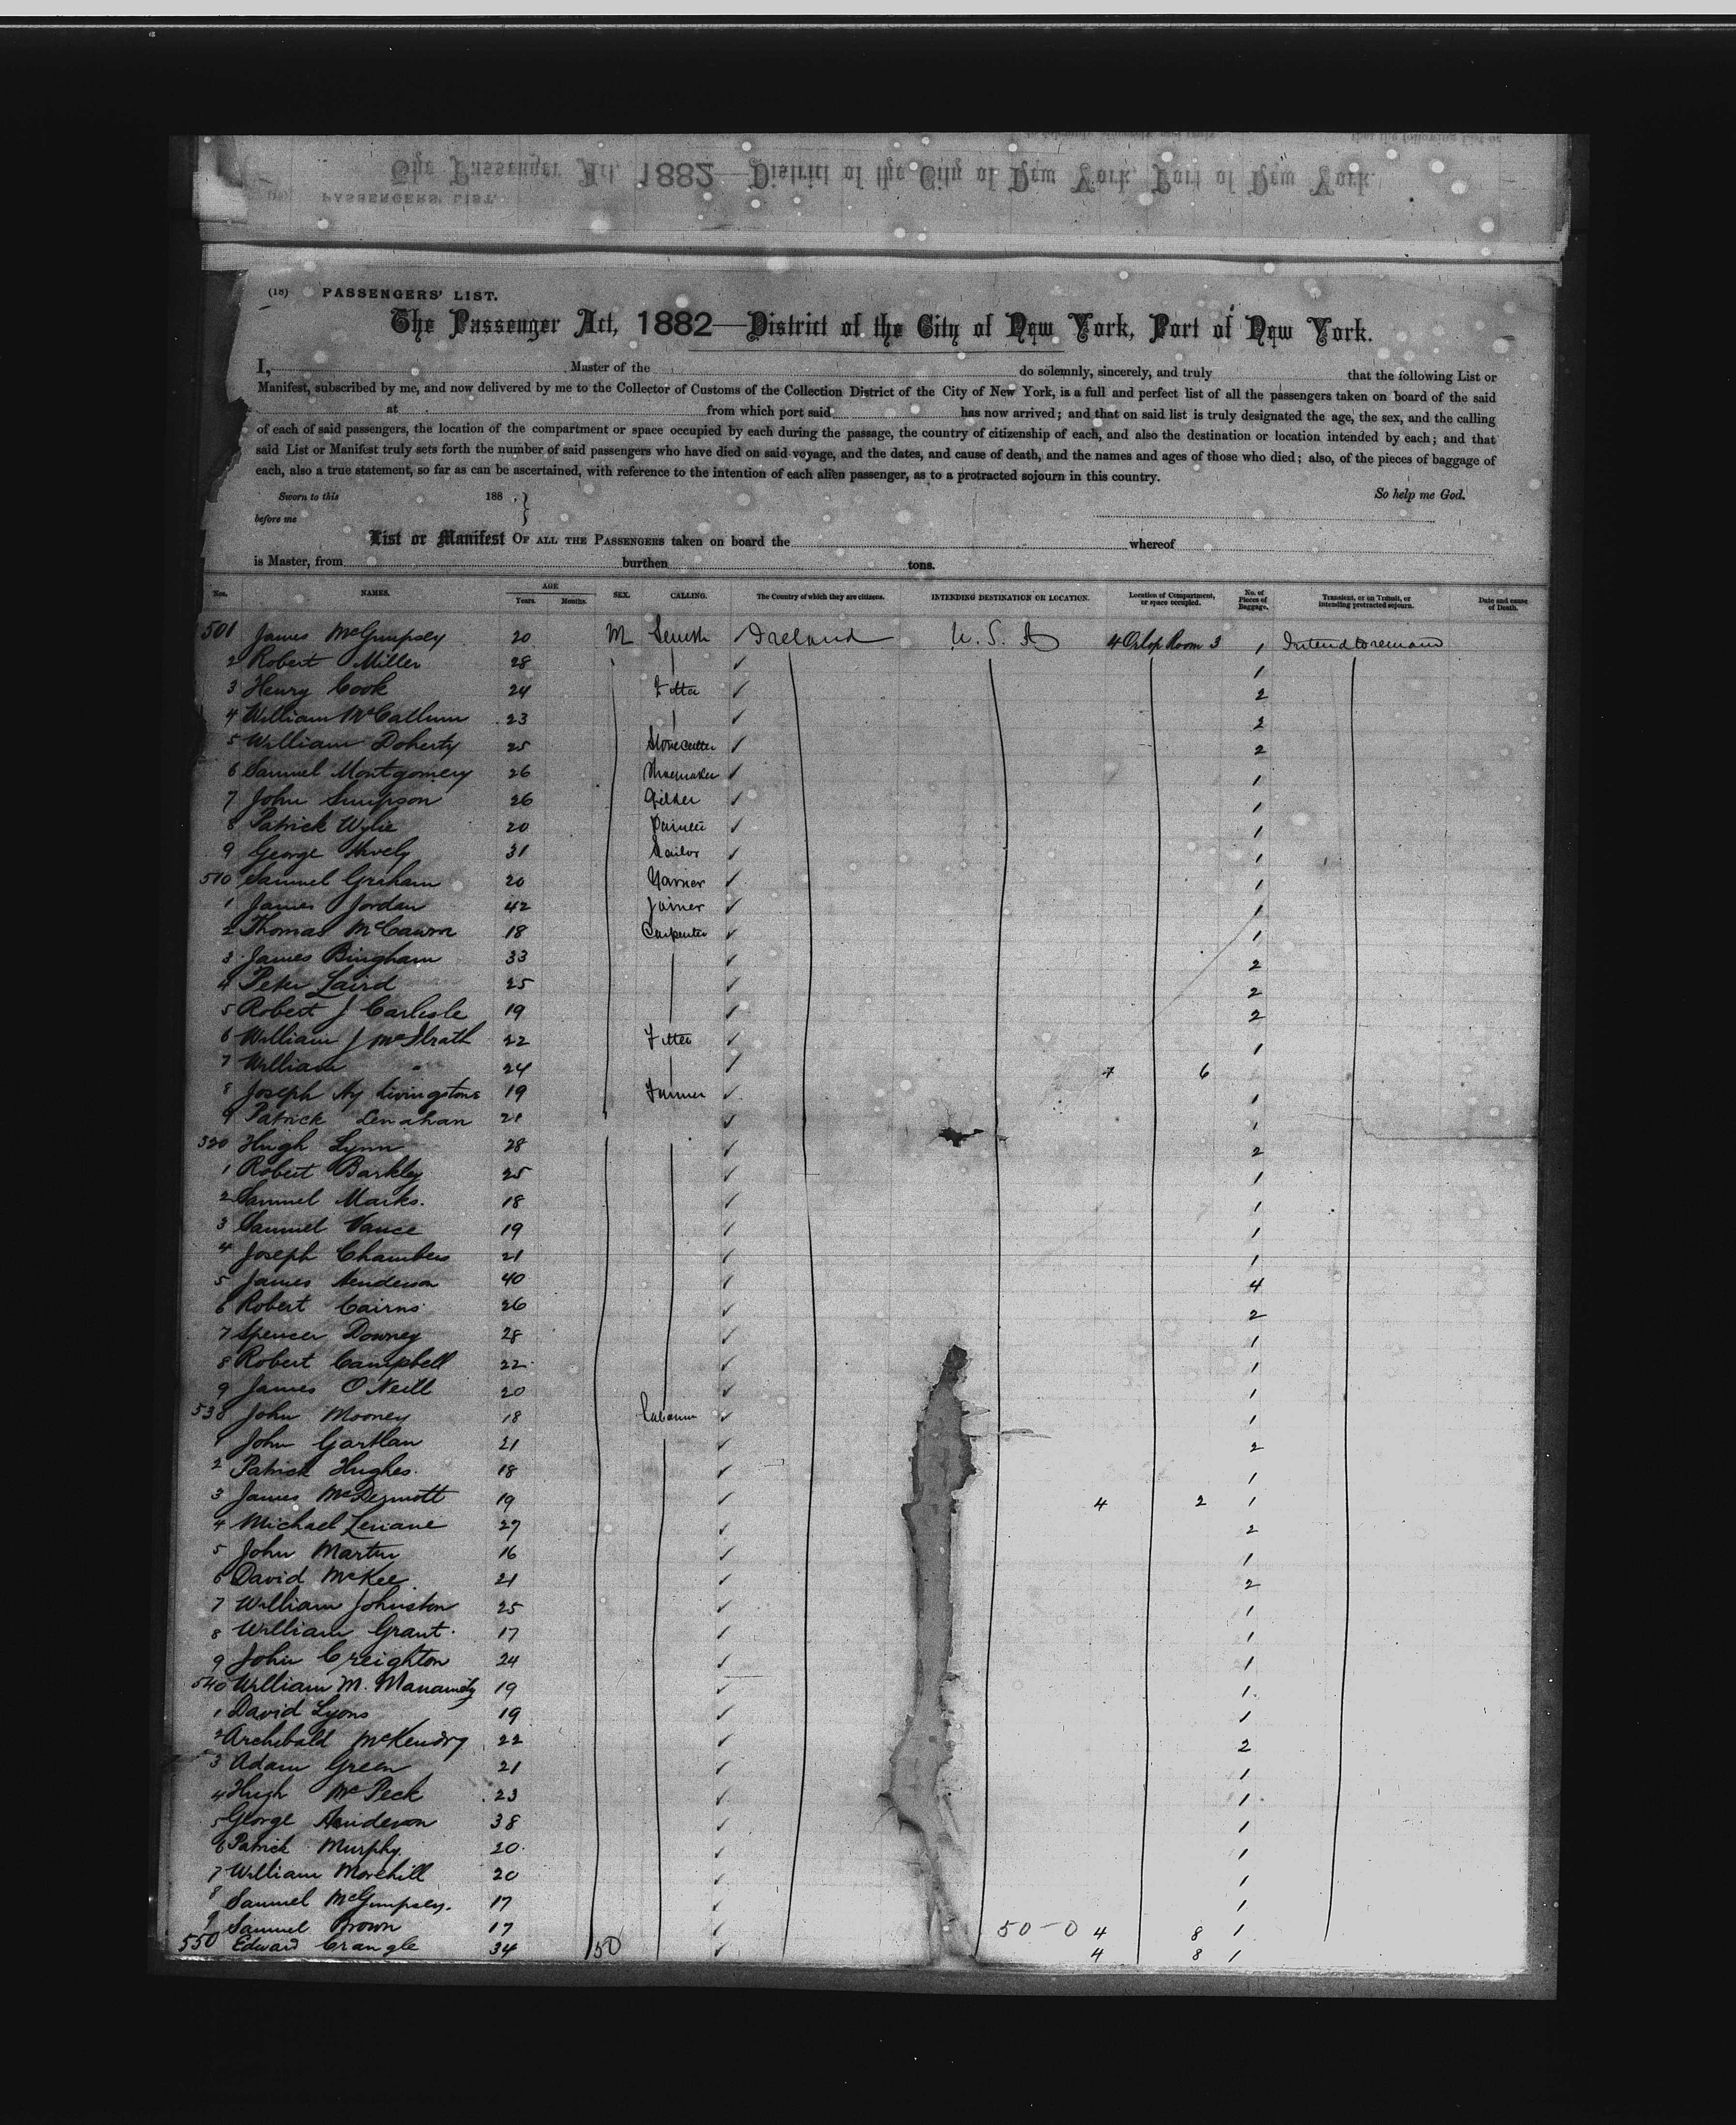 (18) PASSENGERS' LIST.
The Passenger Act, 1882—District of the City of New York, Port of New York.
I, Master of the do solemnly, sincerely, and truly that the following List or
Manifest, subscribed by me, and now delivered by me to the Collector of Customs of the Collection District of the City of New York, is a full and perfect list of all the passengers taken on board of the said
at from which port said has now arrived; and that on said list is truly designated the age, the sex, and the calling
of each of said passengers, the location of the compartment or space occupied by each during the passage, the country of citizenship of each, and also the destination or location intended by each; and that
said List or Manifest truly sets forth the number of said passengers who have died on said voyage, and the dates, and cause of death, and the names and ages of those who died; also, of the pieces of baggage of
each, also a true statement, so far as can be ascertained, with reference to the intention of each alien passenger, as to a protracted sojourn in this country.
Sworn to this 188 . } So help me God.
before me
List or Manifest OF ALL THE PASSENGERS taken on board the whereof
is Master, from burthen tons.
Nos. NAMES. AGE Years. Months. SEX. CALLING. The Country of which they are citizens. INTENDING DESTINATION OR LOCATION. Location of Compartment, or space occupied. No. of Pieces of Baggage. Transient, or on Transit, or intending protracted sojourn. Date and cause of Death.
501 James McGimpsey 20 M Smith Ireland U. S. A 4 Orlop Room 3 1 Intend to remain
2 Robert Miller 28 1
3 Henry Cook 24 Fitter 2
4 William McCallum 23 2
5 William Doherty 25 Stonecutter 2
6 Samuel Montgomery 26 Shoemaker 1
7 John Simpson 26 Gilder 1
8 Patrick Wylie 20 Painter 1
9 George 31 Sailor 1
510 Samuel Graham 20 1
1 James Jordan 42 Joiner 1
2 Thomas McCawn 18 Carpenter 1
3 James Bingham 33 2
4 Peter Laird 25 2
5 Robert J Carlisle 19 2
6 William J McIlrath 22 Fitter 1
7 William " 24 7 6
8 Joseph Hy Livingstone 19 Farmer 1
9 Patrick Lenahan 21 1
520 Hugh Lynn 28 2
1 Robert Barkley 25 1
2 Samuel Marks. 18 1
3 Samuel Vance 19 1
4 Joseph Chambers 21 1
5 James Henderson 40 4
6 Robert Cairns 26 2
7 Spencer Downey 28 1
8 Robert Campbell 22 1
9 James O'Neill 20 1
530 John Mooney 18 Labourer 1
1 John Gartlan 21 2
2 Patrick Hughes. 18 1
3 James McDermott 19 4 2 1
4 Michael Lenane 27 2
5 John Martin 16 1
6 David McKee 21 2
7 William Johnston 25 1
8 William Grant. 17 1
9 John Creighton 24 1
540 William M. 19 1
1 David Lyons 19 1
2 Archibald McKendry 22 2
3 Adam Green 21 1
4 Hugh McPeck 23 1
5 George Henderson 38 1
6 Patrick Murphy 20 1
7 William Morehill 20 1
8 Samuel McGimpsey. 17 1
9 Samuel Brown 17 50-0 4 8 1
550 Edward Crangle 34 50 4 8 1